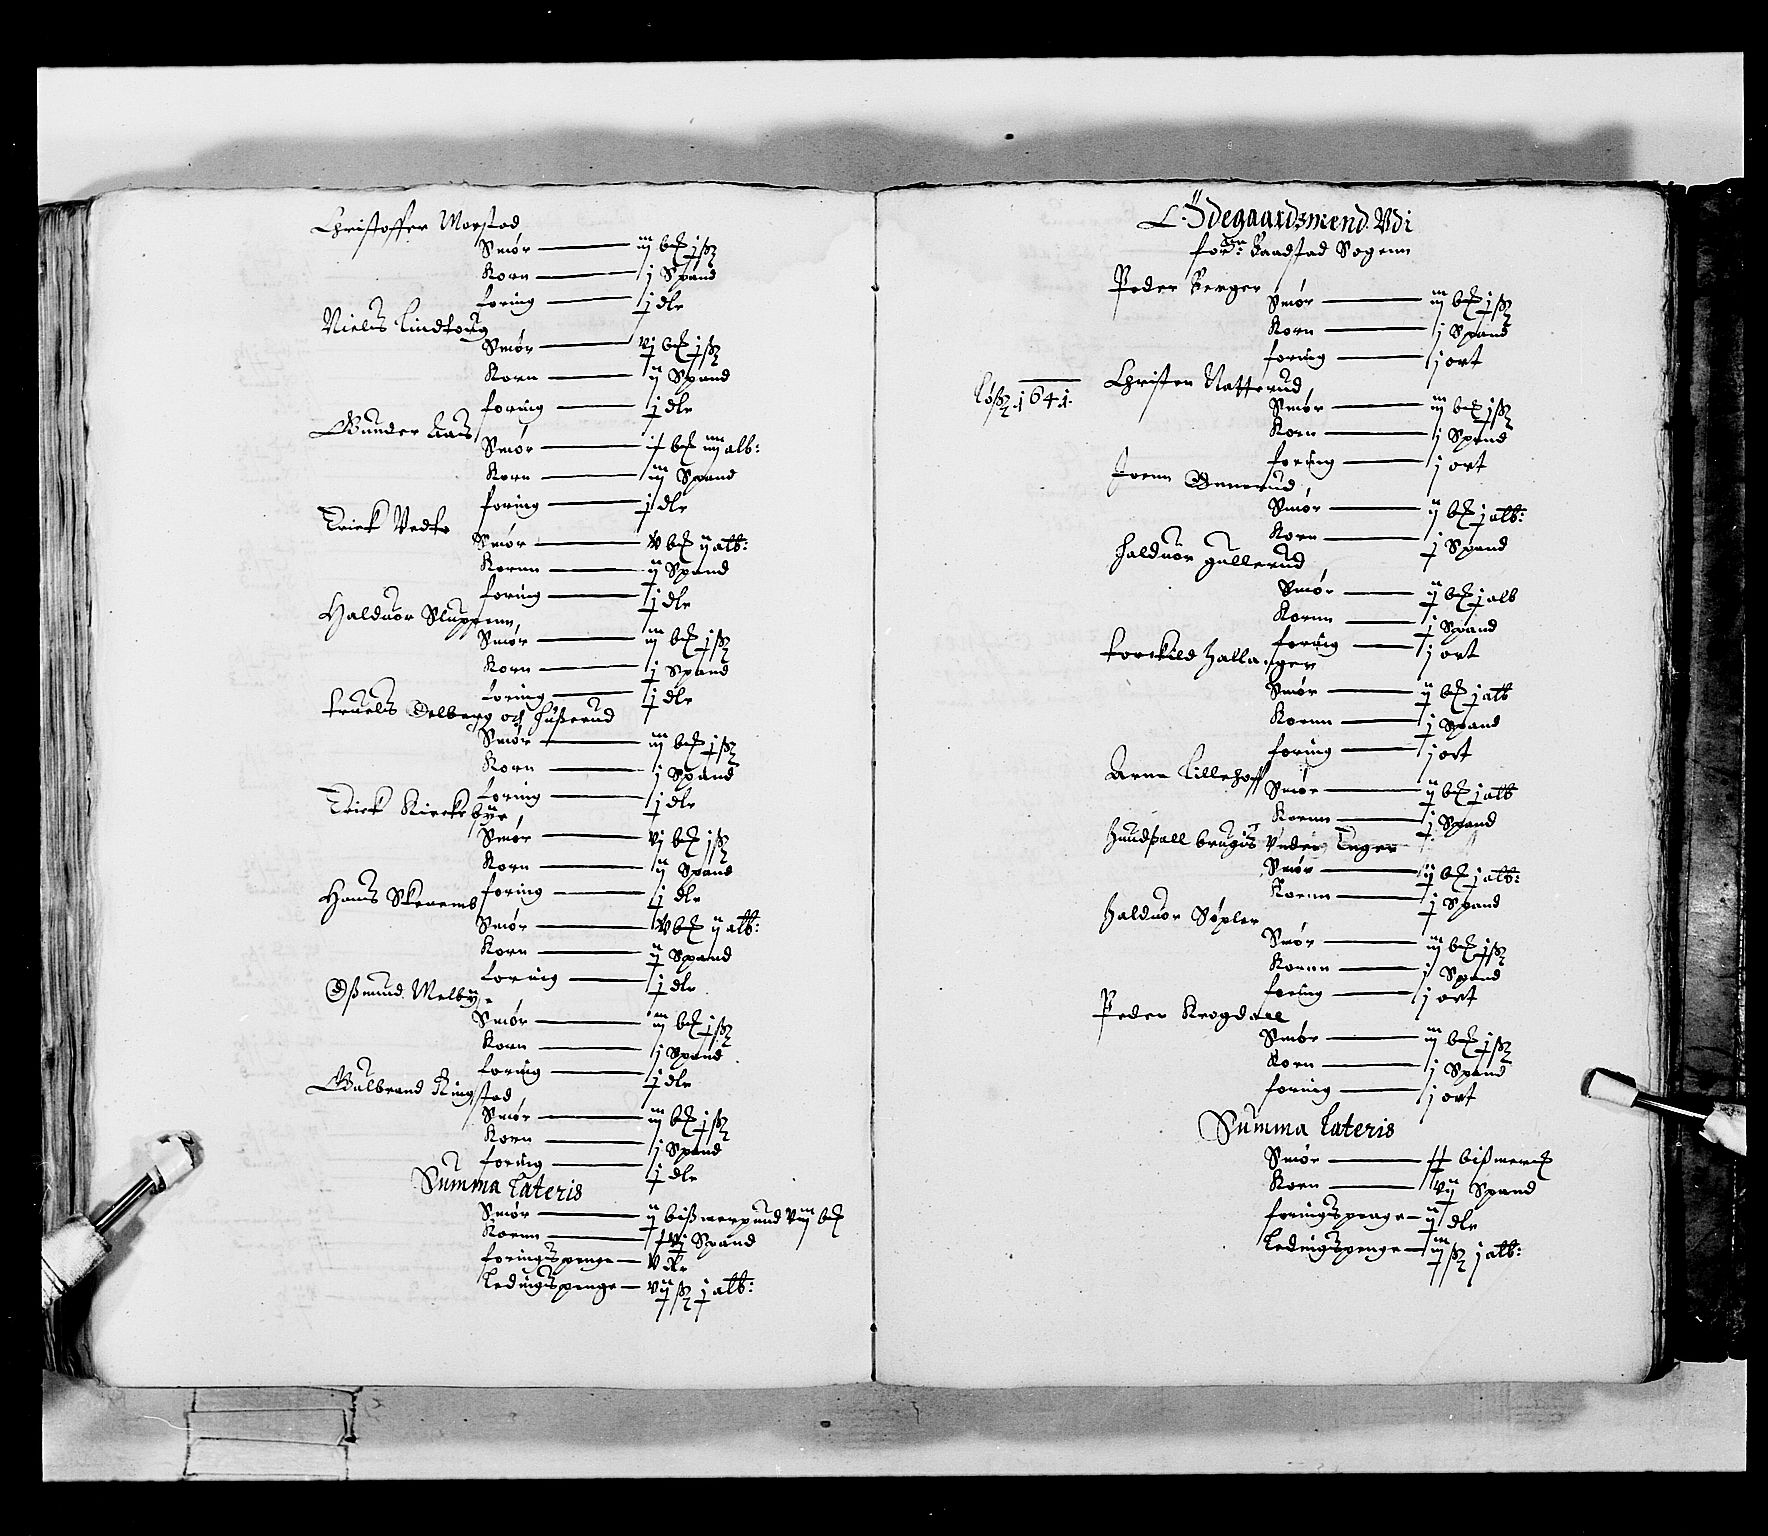 Christoffer Morstad
Smør — iij b℔ j ß
Korn — j Spand
foring — j dlr
Niels Lindtorig
Smør — vj b℔ j ß
Korn — ij Spand
foring — j dlr
Gunder Aas
Smør — b℔ iiij alb:
Korn — iij Spand
foring — j dlr
Erick Vedto
Smør — v b℔ ij alb:
Kornn — ij Spand
foring — j dlr
Halduor Sluppenn
Smør — iij b℔ j ß
Korn — j Spand
foring — j dlr
truels Delberg och Hußerud
Smør — iij b℔ j ß
Korn — j Spand
foring — j dlr
Erick Kirckebye
Smør — vj b℔ j ß
Korn — ij Spand
foring — j dlr
Hans Skrenes
Smør — v b℔ ij alb:
Korn — ij Spand
foring — j dlr
Oßmund Melbye
Smør — iij b℔ j ß
Korn — j Spand
foring — j dlr
Gulbrand Ringstad
Smør — iij b℔ j ß
Korn — j Spand
foring — j dlr
Summa Lateris
Smør — ij bißmerpund viij b℔
Kornn — xvj Spand
foringspenge — v dlr
Ledingspenge — vij ß j alb:
Ødegaardsmend Vdi
fornn: Baadstad Sogenn
Peder Berger
Smør — iij b℔ j ß
Korn — j Spand
foring — j ort
Løß 1641.
Christen Natterud
Smør — iij b℔ j ß
Korn — j Spand
foring — j ort
Joenn Gunerud
Smør — ij b℔ j alb:
Korn — j Spand
Halduor gullerud
Smør — ij b℔ j alb
Kornn — j Spand
foring — j ort
torckild Hallanger
Smør — ij b℔ j alb
Kornn — j Spand
foring — j ort
Arne Lillehoff
Smør — ij b℔ j alb
Kornn — j Spand
Hundßall brugis Vnder Enger
Smør — ij b℔ j alb:
Kornn — j Spand
Halduor Søpler
Smør — iij b℔ j ß
Kornn — j Spand
foring — j ort
Peder Krogdall
Smør — iij b℔ j ß
Korn — j Spand
foring — j ort
Summa Lateris
Smør — bißmerck
Korn — Spand
foringspenge — ij dlr
Ledingspenge — iij ß j alb: